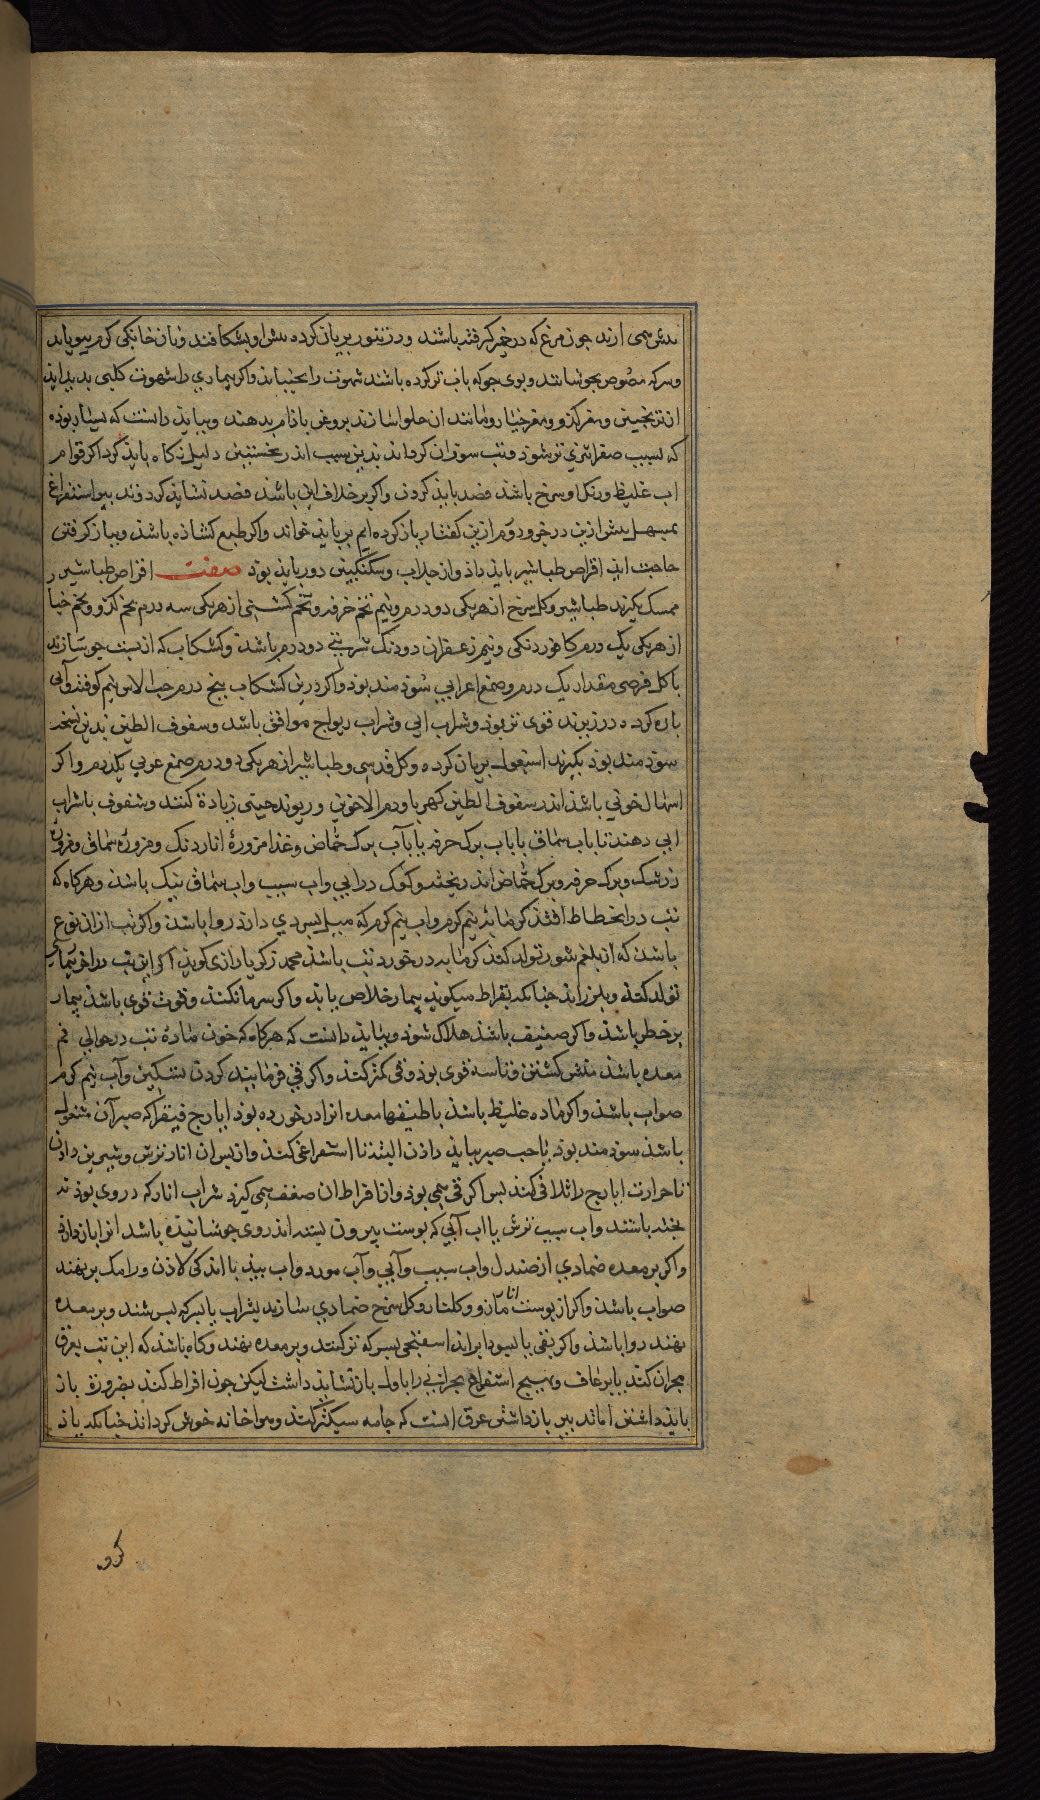 پیش همی ارند چون مرغ که در خمیر گرفته باشند و در تنور بریان کرده پیش او بشکافند و نان خانگی گرم ببویاند
و سرکه مصوص بجوشانند و بوی جو که باب تر کرده باشند شهوت را بجنباند و اگر بیماری را شهوت کلبی بدید اید
از ترنجبین و مغز کدو و مغز خیار و مانند ان حلوا سازند بروغن باذام بدهند و ببایذ دانست که بسیار بوذه
که بسبب صفرا تبری تر شوذ و تب سوزان گرداند بدین سبب اندر نخستین دلیل نگاه بایذ کرد اگر قوام
اب غلیظ و رنک او سرخ باشذ فصد بایذ کردن و اگر بر خلاف این باشذ فصد نشایذ کرد و تدبیر استفراغ
بمسهل پیش ازین در جزو دوم ازین گفتار یاذ کرده ایم بر بایذ خواند و اگر طبع گشاذه باشذ و بباز گرفتن
حاجت اید اقراص طباشیر بایذ داذ و از جلاب و سکنگبین دور بایذ بوذ صفت اقراص طباشیر
ممسک بگیرند طباشیر و گل سرخ از هریکی دو درم و نیم تخم خرفه و تخم کشنی از هریکی سه درم تخم کدو و تخم خیار
از هریکی یک درم کافور دنکی و نیم زعفران دو دنک شربتی دو درم باشد و کشکاب که از پست جو سازند
با گل قرصی مقدار یک درم و صمغ اعرابی سوذمند بوذ و اگر درین کشکاب پنج درم حب الاس نیم کوفته و آبی
پاره کرده در بزند قوی تر بوذ و شراب ابی و شراب ریواج موافق باشد و سفوف الطین بدین نسخه
سوذمند بوذ بگیرند اسبغول بریان کرده و گل قبرسی و طباشیر از هریکی دو درم صمغ عربی یکدرم و اگر
اسهال خونی باشذ اندر سفوف الطین کهربا و دم الاخوین و ریوند چینی زیادة کنند و سفوف با شراب
ابی دهند تا باب سماق یا باب برک خرفه یا بآب برک حماض و غذا مزورهٔ اناردنک و مزورهٔ سماق و مزورهٔ
زرشک و برک خرفه و برک حماض اندر پخته و کوک در ابی و اب سیب و اب سماق نیک باشذ و هرگاه که
تب در انحطاط افتذ گرمابه نیم گرم و اب نیم گرم که میل بسردی دارذ روا باشذ و اگر تب از ان نوع
باشذ که از بلغم شور تولد کند گرمابه در خورد تب باشذ محمد زکریا رازی گویذ اگر این تب در اخر بیماری
تولد کند و بلرزاند چنانکه بقراط میگویذ بیمار خلاص یابد و اگر سرما نکند و قوت قوی باشذ بیمار
بر خطر باشذ و اگر ضعیف باشذ هلاک شوذ و ببایذ دانست که هرگاه که خون مادهٔ تب در حوالی فم
معده باشذ منش گشتن و تاسه قوی بوذ و قی کمتر کند و اگر قی فرمایند کردن بسکبین و آب نیم گرم
صواب باشذ و اگر ماده غلیظ باشذ باطیفها معده انرا در خورده بوذ ایارج فیقرا که صبر آن مغسول
باشذ سوذمند بوذ یا حب صبر ببایذ داذن البته تا استفراغ کند و از پس ان انار ترش و شیرین داذن
تا حرارت ایارج را تلافی کند پس اگر قی همی بوذ و از افراط ان ضعف همی گیرد شراب انار که در وی پوذنه
پخته باشند و اب سیب ترش یا اب آبی که پوست پیرون پسته اندر وی جوشانیده باشد انرا باز دارذ
و اگر بر معده ضمادی از صندل و اب سیب و آبی و آب مورد و اب بید با اندکی لاذن و رامک برنهند
صواب باشذ و اگر از پوست انار و مازو و گلنار و گل سرخ ضمادی سازند بشراب یا بسرکه بسرشند و بر معده
نهند روا باشذ و اگر بقی یا لیسودا براید اسفنجی بسرکه تر کنند و بر معده نهند و گاه باشذ که این تب بعرق
بحران کند یا برعاف و هیچ استفراغ بحرانی را باول باز نشایذ داشت لیکن چون افراط کند بضرورة باز
بایذ داشتن اما تدبیر باز داشتن عرق انست که جامه سبکتر کنند و هوا خانه خوش گردانند چنانکه یاذ
کرده